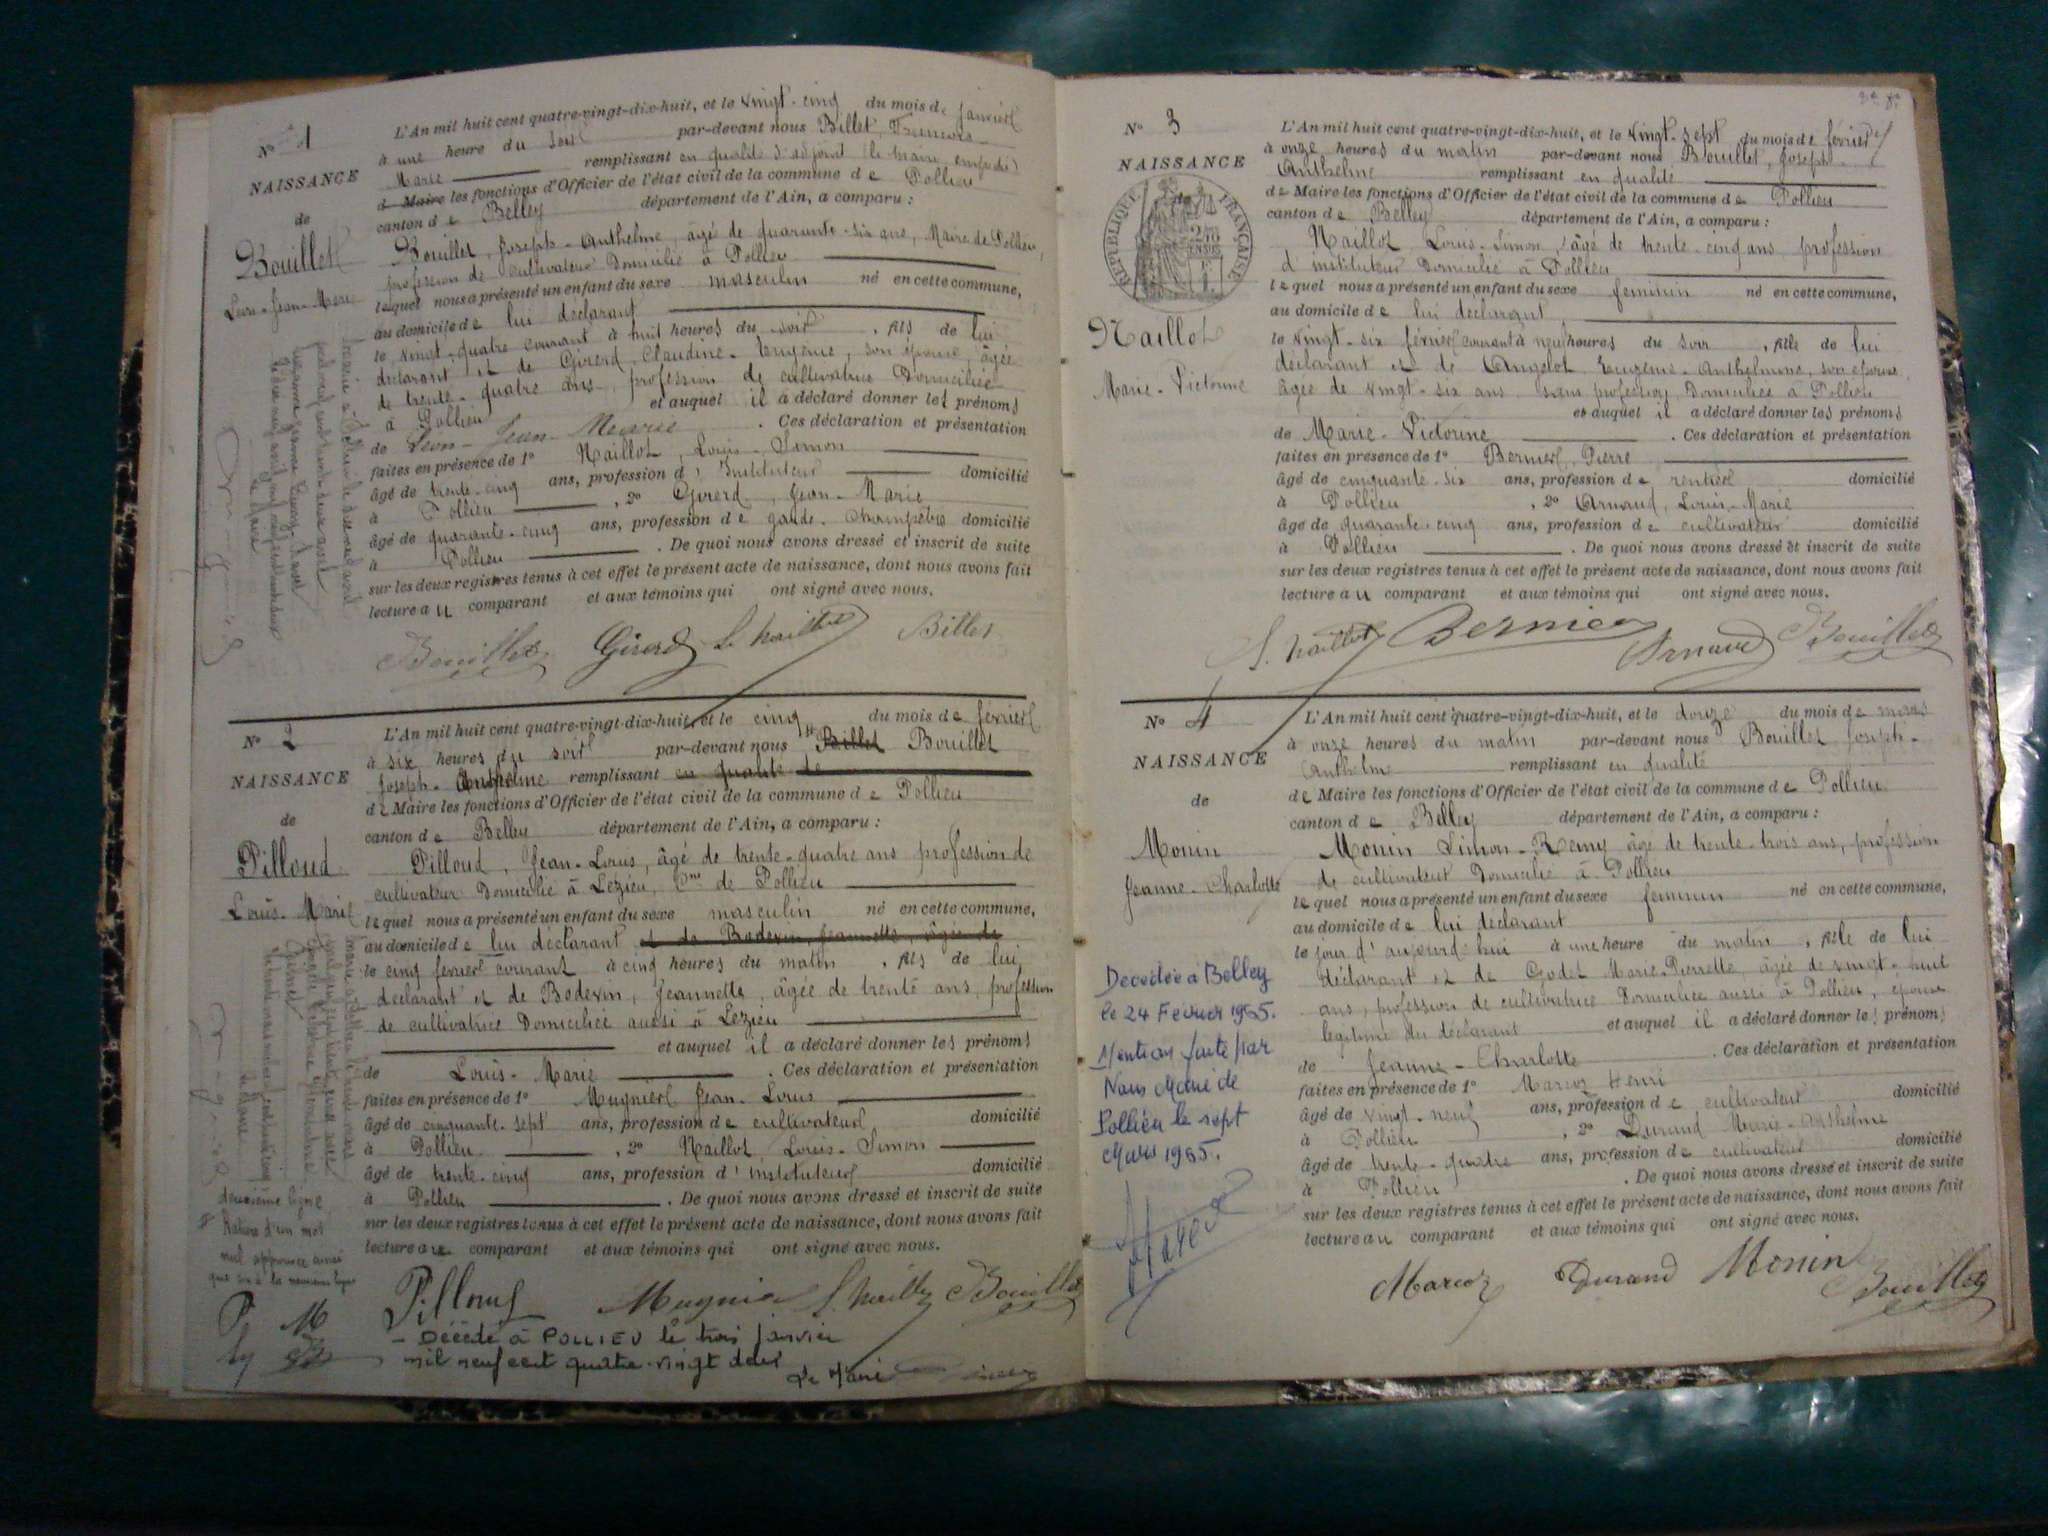 N° 1
NAISSANCE
de
Bouillet
Léon-Jean-Marie
L'An mil huit cent quatre-vingt-dix-huit, et le vingt-cinq du mois de janvier
à une heure du soir par-devant nous Billet, François-
Marie remplissant en qualité d'adjoint (le maire empêché)
de Maire les fonctions d'Officier de l'état civil de la commune de Pollieu
canton de Belley département de l'Ain, a comparu :
Bouillet, Joseph-Anthelme, âgé de quarante-six ans, Maire de Pollieu,
profession de cultivateur domicilié à Pollieu
lequel nous a présenté un enfant du sexe masculin né en cette commune,
au domicile de lui déclarant
le vingt-quatre courant à huit heures du soir, fils de lui
déclarant et de Girerd, Claudine-Eugénie, son épouse, âgée
de trente-quatre ans, profession de cultivatrice domiciliée
à Pollieu et auquel il a déclaré donner les prénoms
de Léon-Jean-Marie. Ces déclaration et présentation
faites en présence de 1° Naillot, Louis-Simon
âgé de trente-cinq ans, profession d'instituteur domicilié
à Pollieu, 2° Girerd, Jean-Marie
âgé de quarante-cinq ans, profession de garde-champêtre domicilié
à Pollieu. De quoi nous avons dressé et inscrit de suite
sur les deux registres tenus à cet effet le présent acte de naissance, dont nous avons fait
lecture au comparant et aux témoins qui ont signé avec nous.
Bouillet Girerd L. Naillot Billet
N° 2
NAISSANCE
de
Pilloud
Louis-Marie
L'An mil huit cent quatre-vingt-dix-huit, et le cinq du mois de février
à six heures du soir par-devant nous Billet Bouillet
Joseph-Anthelme remplissant en qualité de
de Maire les fonctions d'Officier de l'état civil de la commune de Pollieu
canton de Belley département de l'Ain, a comparu :
Pilloud, Jean-Louis, âgé de trente-quatre ans profession de
cultivateur domicilié à Lézieu, Cne de Pollieu
lequel nous a présenté un enfant du sexe masculin né en cette commune,
au domicile de lui déclarant et de Bodevin, Jeannette, âgée de
le cinq février courant à cinq heures du matin, fils de lui
déclarant et de Bodevin, Jeannette, âgée de trente ans, profession
de cultivatrice domiciliée aussi à Lézieu
et auquel il a déclaré donner les prénoms
de Louis-Marie. Ces déclaration et présentation
faites en présence de 1° Mugnier Jean-Louis
âgé de cinquante-sept ans, profession de cultivateur domicilié
à Pollieu, 2° Naillot, Louis-Simon
âgé de trente-cinq ans, profession d'instituteur domicilié
à Pollieu. De quoi nous avons dressé et inscrit de suite
sur les deux registres tenus à cet effet le présent acte de naissance, dont nous avons fait
lecture au comparant et aux témoins qui ont signé avec nous.
deuxième ligne
Rature d'un mot
nul approuvée ainsi
P. M
Pilloud Mugnier L. Naillot Bouillet
- Décédé à POLLIEU le trois janvier
mil neuf cent quatre-vingt deux
Le Maire
N° 3
NAISSANCE
RÉPUBLIQUE FRANÇAISE
Naillot
Marie-Victorine
L'An mil huit cent quatre-vingt-dix-huit, et le vingt-sept du mois de février
à onze heures du matin par-devant nous Bouillet, Joseph-
Anthelme remplissant en qualité
de Maire les fonctions d'Officier de l'état civil de la commune de Pollieu
canton de Belley département de l'Ain, a comparu :
Naillot, Louis-Simon, âgé de trente-cinq ans, profession
d'instituteur domicilié à Pollieu
lequel nous a présenté un enfant du sexe féminin né en cette commune,
au domicile de lui déclarant,
le vingt-six février courant à neuf heures du soir, fille de lui
déclarant et de Angelot, Eugénie-Anthelmine, son épouse,
âgée de vingt-six ans sans profession, domiciliée à Pollieu
et auquel il a déclaré donner les prénoms
de Marie-Victorine. Ces déclaration et présentation
faites en présence de 1° Bernier, Pierre
âgé de cinquante-six ans, profession de rentier domicilié
à Pollieu, 2° Arnaud, Louis-Marie
âgé de quarante-cinq ans, profession de cultivateur domicilié
à Pollieu. De quoi nous avons dressé et inscrit de suite
sur les deux registres tenus à cet effet le présent acte de naissance, dont nous avons fait
lecture au comparant et aux témoins qui ont signé avec nous.
L. Naillot Bernier Arnaud Bouillet
N° 4
NAISSANCE
de
Monin
Jeanne-Charlotte
Décédée à Belley
le 24 Février 1965.
Mention faite par
Nous Maire de
Pollieu le sept
Mars 1965.
L'An mil huit cent quatre-vingt-dix-huit, et le douze du mois de mars
à onze heures du matin par-devant nous Bouillet, Joseph-
Anthelme remplissant en qualité
de Maire les fonctions d'Officier de l'état civil de la commune de Pollieu
canton de Belley département de l'Ain, a comparu :
Monin Simon-Rémy âgé de trente-trois ans, profession
de cultivateur domicilié à Pollieu
lequel nous a présenté un enfant du sexe féminin né en cette commune,
au domicile de lui déclarant
le jour d'aujourd'hui à une heure du matin, fille de lui
déclarant et de Godet Marie-Pierrette, âgée de vingt-huit
ans, profession de cultivatrice domiciliée aussi à Pollieu, épouse
légitime du déclarant et auquel il a déclaré donner les prénoms
de Jeanne-Charlotte. Ces déclaration et présentation
faites en présence de 1° Marcoz Henri
âgé de vingt-neuf ans, profession de cultivateur domicilié
à Pollieu, 2° Durand Marie-Anthelme
âgé de trente-quatre ans, profession de cultivateur domicilié
à Pollieu. De quoi nous avons dressé et inscrit de suite
sur les deux registres tenus à cet effet le présent acte de naissance, dont nous avons fait
lecture au comparant et aux témoins qui ont signé avec nous.
Marcoz Durand Monin Bouillet